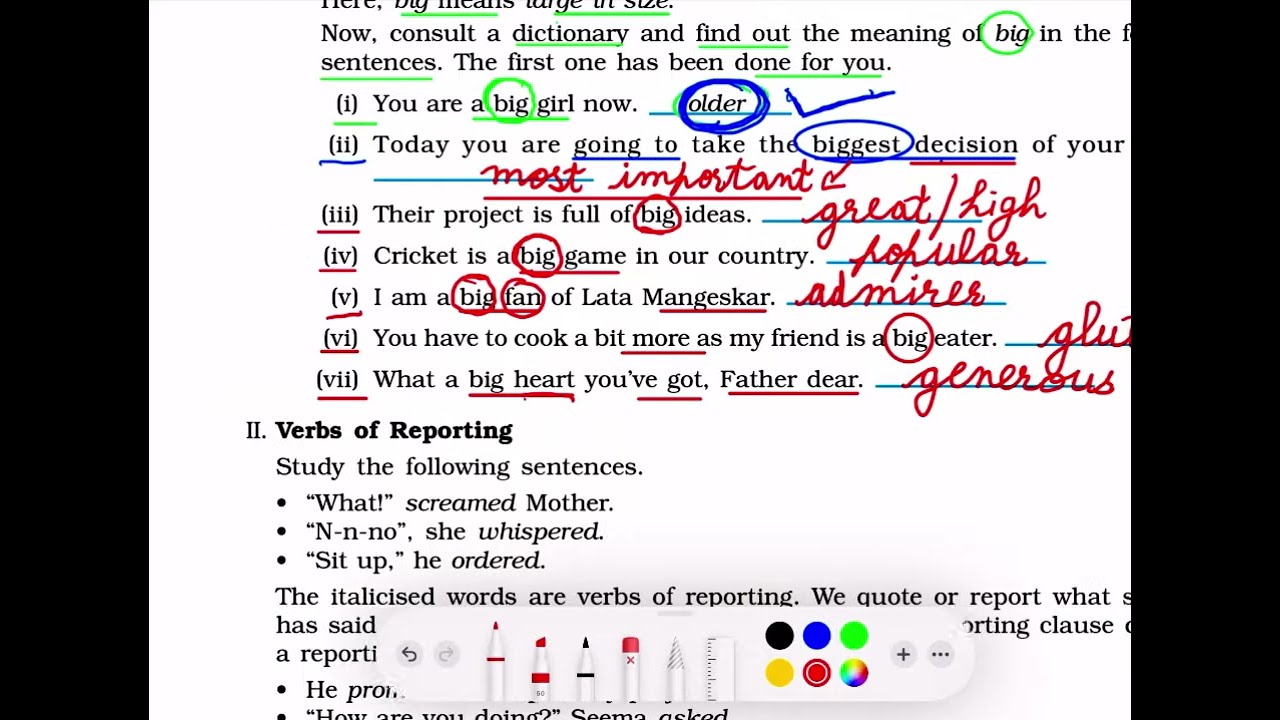 Here, big means large in size.
Now, consult a dictionary and find out the meaning of big in the f
sentences. The first one has been done for you.
(i) You are a big girl now. older
(ii) Today you are going to take the biggest decision of your
most important
(iii) Their project is full of big ideas. great/high
(iv) Cricket is a big game in our country. popular
(v) I am a big fan of Lata Mangeskar. admirer
(vi) You have to cook a bit more as my friend is a big eater. glut
(vii) What a big heart you've got, Father dear. generous
II. Verbs of Reporting
Study the following sentences.
• “What!” screamed Mother.
• “N-n-no”, she whispered.
• “Sit up,” he ordered.
The italicised words are verbs of reporting. We quote or report what s
has said orting clause
a reporti
• He
50
• “How are you doing?” Seema asked